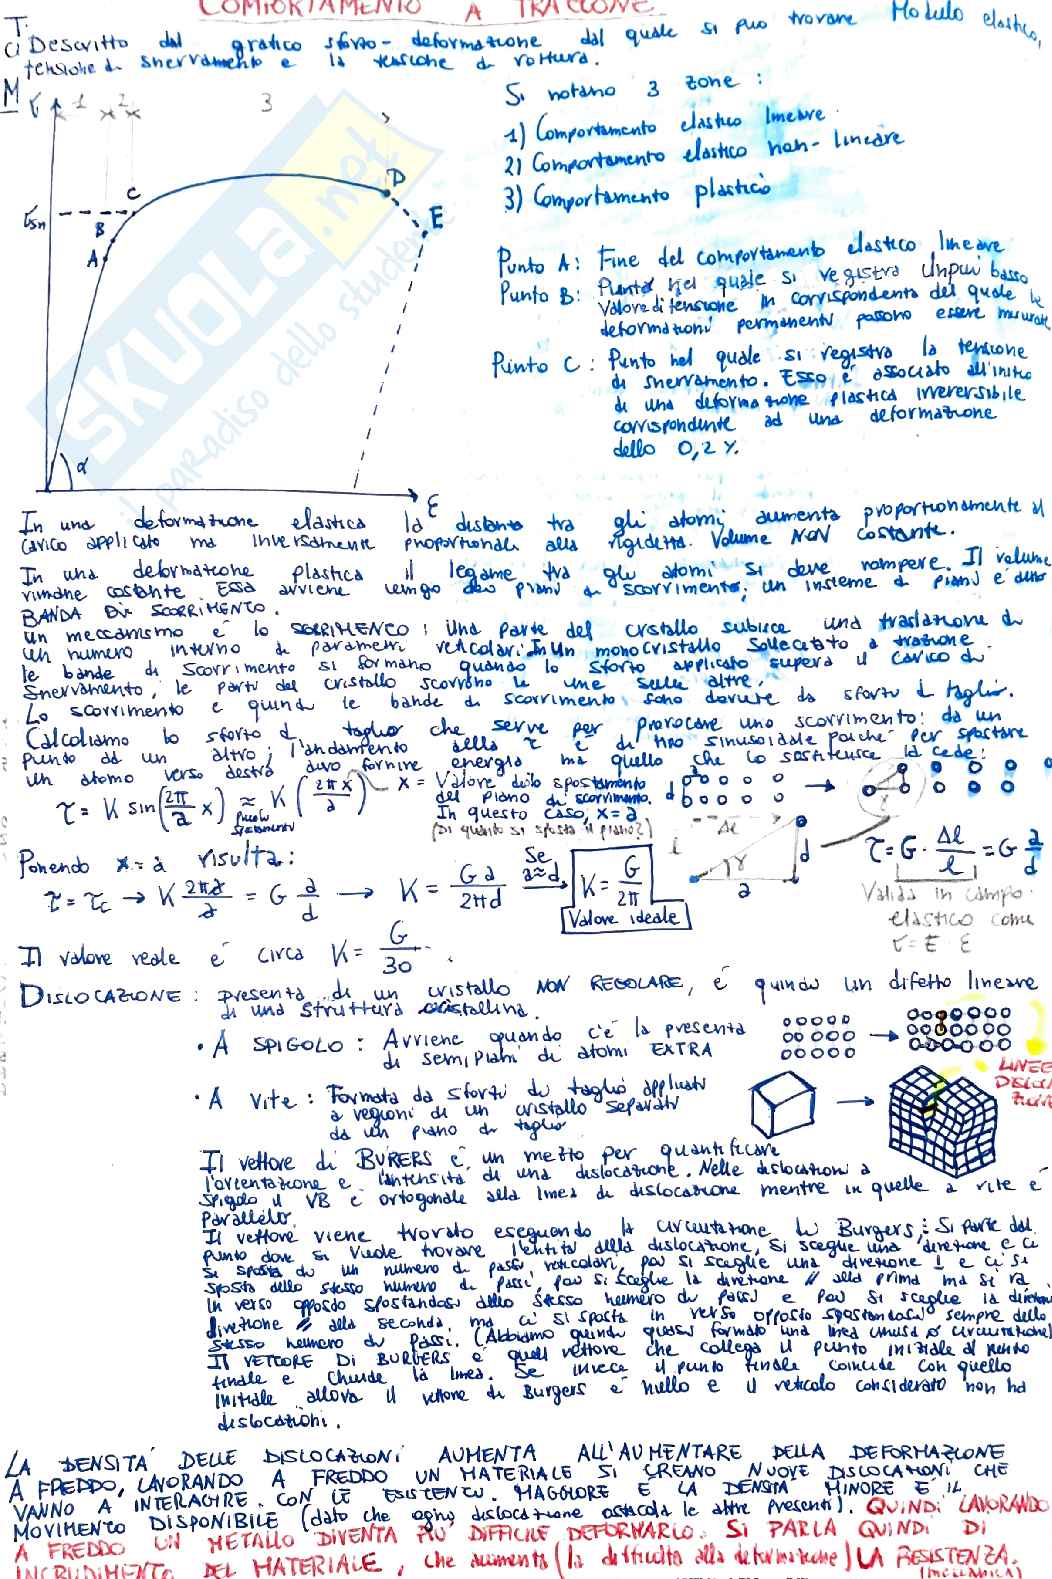 COMPORTAMENTO A TRAZIONE
Descritto dal grafico sforzo - deformazione dal quale si può trovare Modulo elastico,
tensione di snervamento e la tensione di rottura.
σ 1 2 3
Si notano 3 zone :
1) Comportamento elastico lineare
2) Comportamento elastico non-lineare
3) Comportamento plastico
C D
σsn B E
A
α ε
SKUOLA.net
il paradiso dello studente
Punto A: Fine del comportamento elastico lineare
Punto B: Punto nel quale si registra un più basso
valore di tensione in corrispondenza del quale le
deformazioni permanenti possono essere misurate
Punto C: Punto nel quale si registra la tensione
di snervamento. Esso è associato all'inizio
di una deformazione plastica irreversibile
corrispondente ad una deformazione
dello 0,2 %.
In una deformazione elastica la distanza tra gli atomi aumenta proporzionamente al
carico applicato ma inversamente proporzionale alla rigidezza. Volume NON costante.
In una deformazione plastica il legame tra gli atomi si deve rompere. Il volume
rimane costante. Essa avviene lungo dei piani di scorrimento; un insieme di piani è detto
BANDA DI SCORRIMENTO.
Un meccanismo è lo SCORRIMENTO: una parte del cristallo subisce una traslazione di
un numero intero di parametri reticolari. In un monocristallo sollecitato a trazione
le bande di scorrimento si formano quando lo sforzo applicato supera il carico di
snervamento, le parti del cristallo scorrono le une sulle altre.
Lo scorrimento e quindi le bande di scorrimento sono dovute da sforzi di taglio.
Calcoliamo lo sforzo di taglio che serve per provocare uno scorrimento: da un
punto ad un altro; l'andamento della τ è di tipo sinusoidale poiché per spostare
un atomo verso destra devo fornire energia ma quello che lo sostituisce la cede:
τ = K sin(2π/a x) ≈ K (2πx/a)
piccoli spostamenti
x = Valore dello spostamento
del piano di scorrimento.
In questo caso, x=a
(Di quanto si sposta il piano?)
Δl
l γ d
a
τ = G · Δl/l = G a/d
Valida in campo
elastico come
σ = E · ε
Ponendo x = a risulta:
τ = τc → K 2πa/a = G a/d → K = Ga/2πd Se a≈d → K = G/2π
Valore ideale
Il valore reale è circa K = G/30.
DISLOCAZIONE: presenza di un cristallo NON REGOLARE, è quindi un difetto lineare
di una struttura cristallina.
• A SPIGOLO: Avviene quando c'è la presenza
di semipiani di atomi EXTRA
• A VITE: Formata da sforzi di taglio applicati
a regioni di un cristallo separati
da un piano di taglio
Il vettore di BURERS è un mezzo per quantificare
l'orientazione e l'intensità di una dislocazione. Nelle dislocazioni a
spigolo il VB è ortogonale alla linea di dislocazione mentre in quelle a vite è
parallelo.
Il vettore viene trovato eseguendo la circuitazione di Burgers: Si parte dal
punto dove si vuole trovare l'entità della dislocazione, si sceglie una direzione e ci
si sposta di un numero di passi reticolari, poi si sceglie una direzione ⊥ e ci si
sposta dello stesso numero di passi, poi si sceglie la direzione // alla prima ma si va
in verso opposto spostandosi dello stesso numero di passi e poi si sceglie la
direzione // alla seconda, ma ci si sposta in verso opposto spostandosi sempre dello
stesso numero di passi. (Abbiamo quindi quasi formato una linea chiusa o circuitazione)
Il VETTORE DI BURGERS è quel vettore che collega il punto iniziale al punto
finale e chiude la linea. Se invece il punto finale coincide con quello
iniziale allora il vettore di Burgers è nullo e il reticolo considerato non ha
dislocazioni.
LA DENSITÀ DELLE DISLOCAZIONI AUMENTA ALL'AUMENTARE DELLA DEFORMAZIONE
A FREDDO, LAVORANDO A FREDDO UN MATERIALE SI CREANO NUOVE DISLOCAZIONI CHE
VANNO A INTERAGIRE CON LE ESISTENTI. MAGGIORE È LA DENSITÀ MINORE È IL
MOVIMENTO DISPONIBILE (dato che ogni dislocazione ostacola le altre presenti). QUINDI LAVORANDO
A FREDDO UN METALLO DIVENTA PIÙ DIFFICILE DEFORMARLO. SI PARLA QUINDI DI
INCRUDIMENTO DEL MATERIALE, che aumenta (la difficoltà alla deformazione) LA RESISTENZA.
(MECCANICA)